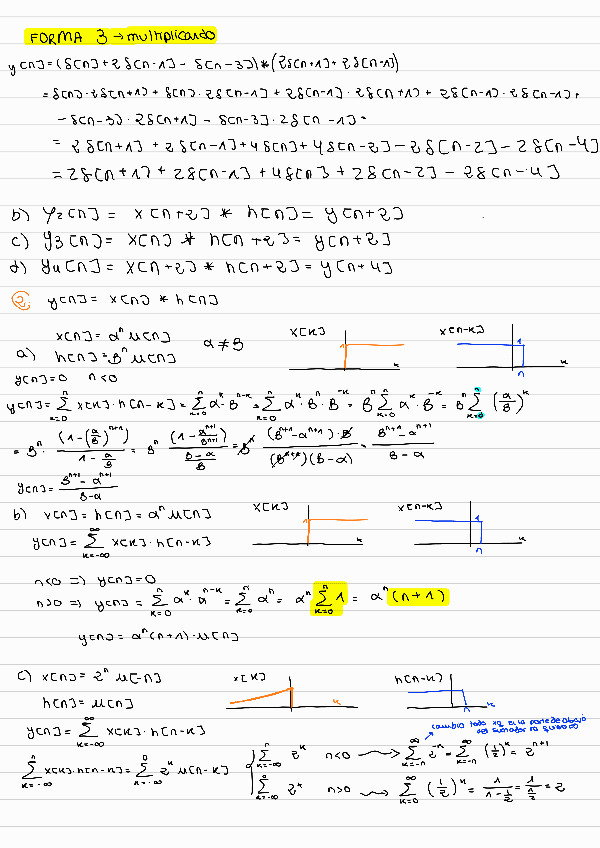 FORMA 3 → multiplicando
y[n] = (δ[n] + 2δ[n-1] - δ[n-3]) * (2δ[n+1] + 2δ[n-1])
= δ[n]·2δ[n+1] + δ[n]·2δ[n-1] + 2δ[n-1]·2δ[n+1] + 2δ[n-1]·2δ[n-1] +
- δ[n-3]·2δ[n+1] - δ[n-3]·2δ[n-1] =
= 2δ[n+1] + 2δ[n-1] + 4δ[n] + 4δ[n-2] - 2δ[n-2] - 2δ[n-4]
= 2δ[n+1] + 2δ[n-1] + 4δ[n] + 2δ[n-2] - 2δ[n-4]
b) y2[n] = x[n+2] * h[n] = y[n+2]
c) y3[n] = x[n] * h[n+2] = y[n+2]
d) y4[n] = x[n+2] * h[n+2] = y[n+4]
2. y[n] = x[n] * h[n]
x[n] = α^n u[n] α≠β x[k] x[n-k]
a) h[n] = β^n u[n] 1 k 1 n k
y[n] = 0 n<0
y[n] = ∑_{k=0}^{n} x[k]·h[n-k] = ∑_{k=0}^{n} α^k·β^{n-k} = ∑_{k=0}^{n} α^k·β^n·β^{-k} = β^n ∑_{k=0}^{n} α^k·β^{-k} = β^n ∑_{k=0}^{n} (α/β)^k
= β^n · (1-(α/β)^{n+1}) / (1 - α/β) = β^n (1 - α^{n+1}/β^{n+1}) / ((β-α)/β) = β^n (β^{n+1} - α^{n+1})·β / ((β^{n+1})(β-α)) = (β^{n+1} - α^{n+1}) / (β-α)
y[n] = (β^{n+1} - α^{n+1}) / (β-α)
b) x[n] = h[n] = α^n u[n] x[k] 1 k x[n-k] 1 n k
y[n] = ∑_{k=-∞}^{∞} x[k]·h[n-k]
n<0 => y[n] = 0
n>0 => y[n] = ∑_{k=0}^{n} α^k·α^{n-k} = ∑_{k=0}^{n} α^n = α^n ∑_{k=0}^{n} 1 = α^n (n+1)
y[n] = α^n (n+1)·u[n]
c) x[n] = 2^n u[-n] x[k] k h[n-k] n k
h[n] = u[n]
y[n] = ∑_{k=-∞}^{∞} x[k]·h[n-k]
cambio todo xq si la parte de abajo del sumatorio
∑_{k=-∞}^{n} x[k]·h[n-k] = ∑_{k=-∞}^{0} 2^k u[n-k]
∑_{k=-∞}^{n} 2^k n<0 → ∑_{k=-n}^{∞} 2^{-k} = ∑_{k=-n}^{∞} (1/2)^k = 2^{n+1}
∑_{k=-∞}^{0} 2^k n>0 → ∑_{k=0}^{∞} (1/2)^k = 1/(1-1/2) = 1/(1/2) = 2